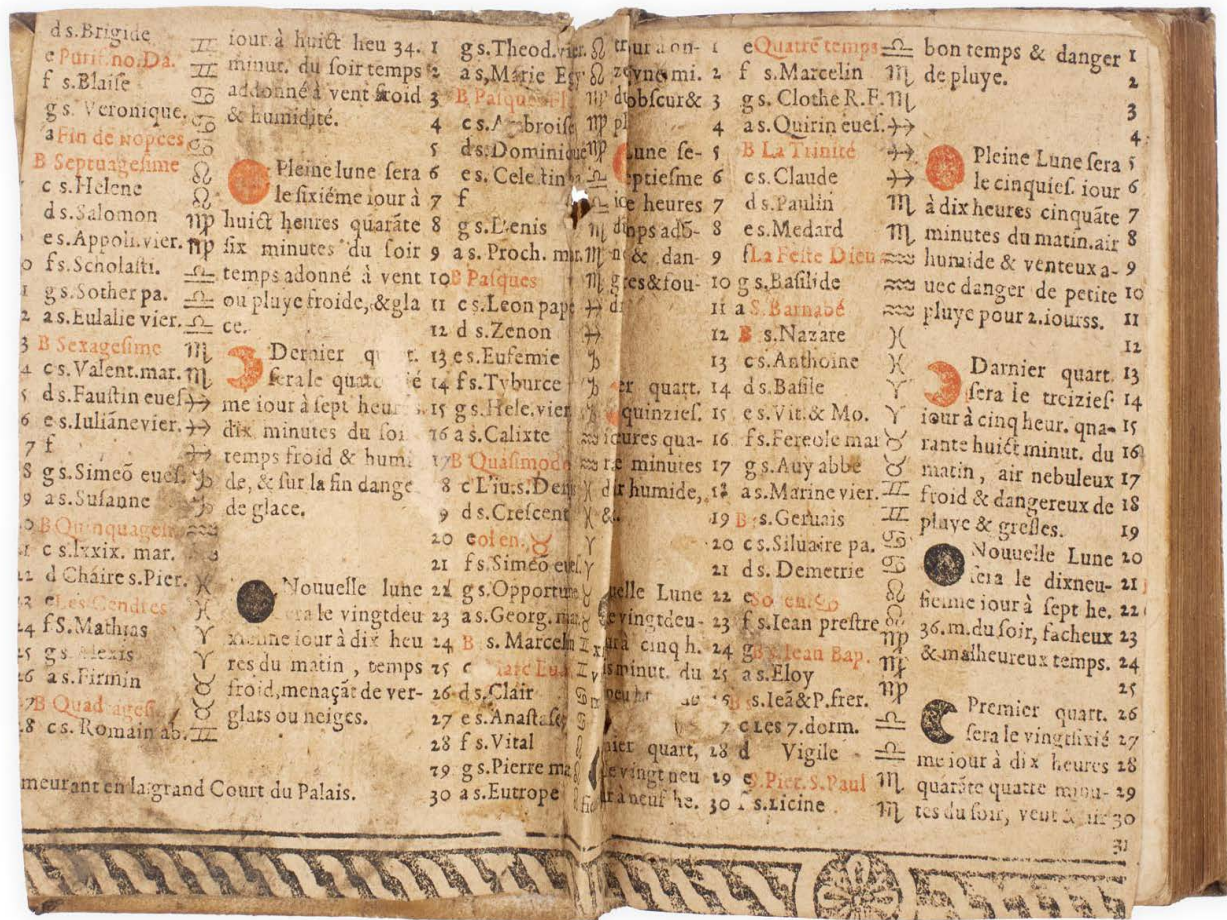 d s.Brigide
e Purif.no.Da.
f s.Blaise
g s. Veronique.
a Fin de nopces
B Septuagesime
c s.Helene
d s.Salomon
e s.Appoli.vier.
f s.Scholasti.
g s.Sother pa.
a s.Eulalie vier.
B Sexagesime
c s.Valent.mar.
d s.Faustin eues
e s.Iuliãne vier.
7 f
8 g s.Simeõ eues.
9 a s.Susanne
B Quinquages
c s.lxxix. mar.
d Cháire s.Pier.
e Les Cendres
24 f S.Mathias
25 g s. Alexis
26 a s.Firmin
B Quadrages.
28 c s. Romain ab.
meurant en la grand Court du Palais.
iour à huict heu 34.
minut. du soir temps
addonné à vent froid
& humidité.
Pleine lune sera
le sixiéme iour à
huict heures quarãte
six minutes du soir
temps adonné à vent
ou pluye froide, & gla
ce.
Dernier
sera le
me iour à sept heur
dix minutes du soi
temps froid & humi
de, & sur la fin dange
de glace.
Nouuelle lune
sera le vingtdeu
xieme iour à dix heu
res du matin, temps
froid, menaçãt de ver-
glats ou neiges.
1 g s.Theod.vier.
2 a s,Marie Egy
3 B Pasques
4 c s.Ambroise
5 d s.Dominique
6 e s. Celestin
7 f
8 g s.Denis
9 a s. Proch. mar.
10 B Pasques
11 c s.Leon pape
12 d s.Zenon
13 e s.Eufemie
14 f s.Tyburce
15 g s.Hele.vier
16 a s.Calixte
17 B Quasimodo
8 c L'iu.s.Deni
9 d s.Crescent
20 e ol en.♉
21 f s.Simeõ eues.
22 g s.Opportune
23 a s.Georg.mar
24 B s. Marcelin
25 c Marc Eua.
26 d s.Clair
27 e s.Anastase
28 f s.Vital
29 g s.Pierre ma
30 a s.Eutrope
Lune se-
ptiesme
heures
& dan-
gres & fou-
quart.
quinzies.
heures qua-
minutes
humide,
&
Lune
vingtdeu-
cinq h.
minut. du
quart,
vingt neu
à neuf he.
1 e Quatre temps
2 f s.Marcelin
3 g s. Clothe R.F.
4 a s.Quirin eues.
5 B La Trinité
6 c s.Claude
7 d s.Paulin
8 e s.Medard
9 f La Feste Dieu
10 g s.Basilide
11 a S.Barnabé
12 B s.Nazare
13 c s.Anthoine
14 d s.Basile
15 e s.Vit.& Mo.
16 f s.Fereole mar
17 g s.Auy abbé
18 a s.Marine vier.
19 B s.Geruais
20 c s.Siluaire pa.
21 d s. Demetrie
22 e
23 f s.Iean prestre
24 g Iean Bap.
25 a s.Eloy
s.Ieã & P.frer.
c Les 7.dorm.
28 d Vigile
29 e S.Pier.S.Paul
30 f s.Licine
bon temps & danger 1
de pluye. 2
3
4
Pleine Lune sera 5
le cinquies. iour 6
à dix heures cinquãte 7
minutes du matin.air 8
humide & venteux a- 9
uec danger de petite 10
pluye pour 2.iourss. 11
12
Darnier quart. 13
sera le treizies. 14
iour à cinq heur. qna- 15
rante huict minut. du 16
matin, air nebuleux 17
froid & dangereux de 18
pluye & gresles. 19
Nouuelle Lune 20
sera le dixneu- 21
fieme iour à sept he. 22
36.m.du soir, facheux 23
& malheureux temps. 24
25
Premier quart. 26
sera le vingtsixié 27
me iour à dix heures 28
quarãte quatre minu- 29
tes du soir, vent & air 30
31